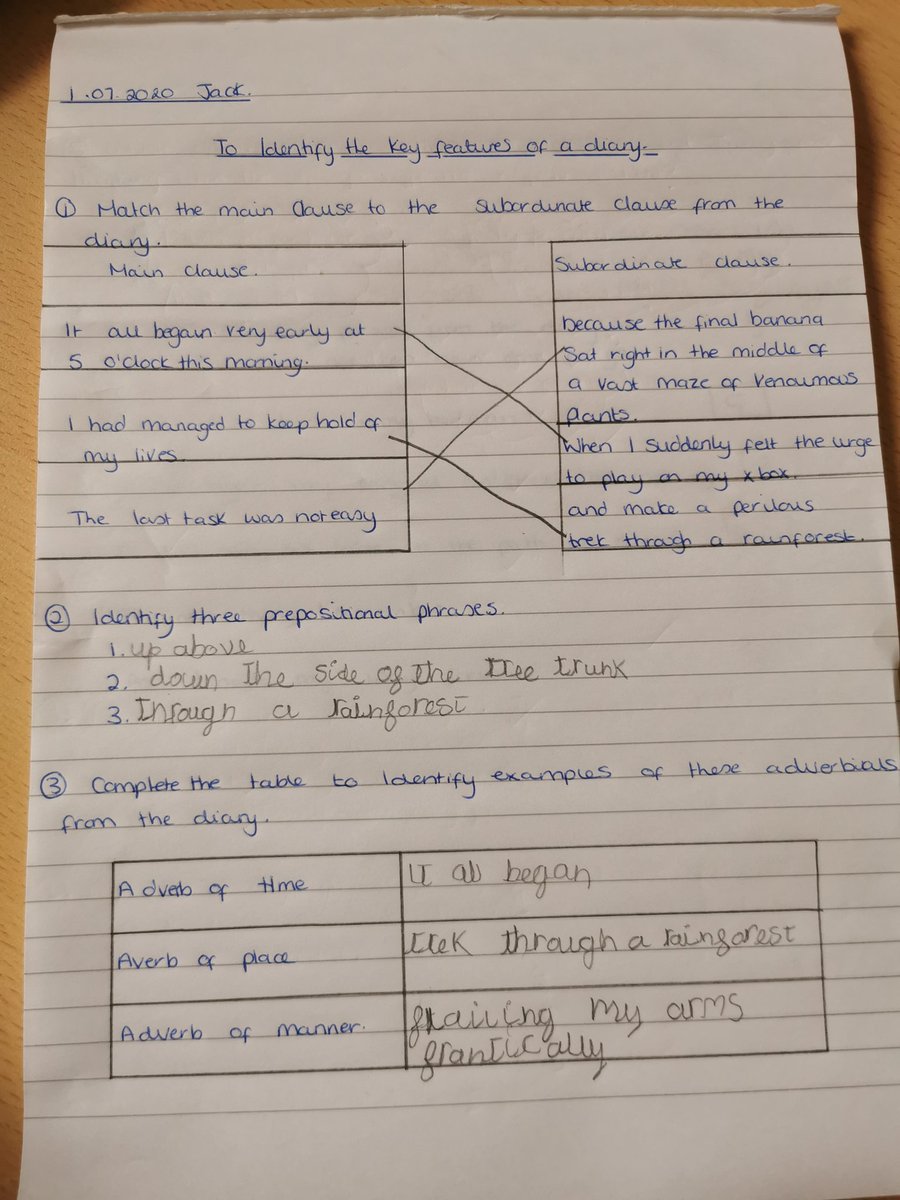 1.07.2020 Jack.
To Identify the key features of a diary.
① Match the main clause to the subordinate clause from the
diary.
Main clause.
It all began very early at
5 o'clock this morning.
I had managed to keep hold of
my lives.
The last task was not easy
Subordinate clause.
because the final banana
Sat right in the middle of
a vast maze of venoumous
plants.
When I suddenly felt the urge
to play on my xbox.
and make a perilous
trek through a rainforest.
② Identify three prepositional phrases.
1. up above
2. down the side of the tree trunk
3. through a rainforest
③ Complete the table to Identify examples of these adverbials
from the diary.
Adverb of time
It all began
Averb of place
trek through a rainforest
Adverb of manner.
flailing my arms
frantically